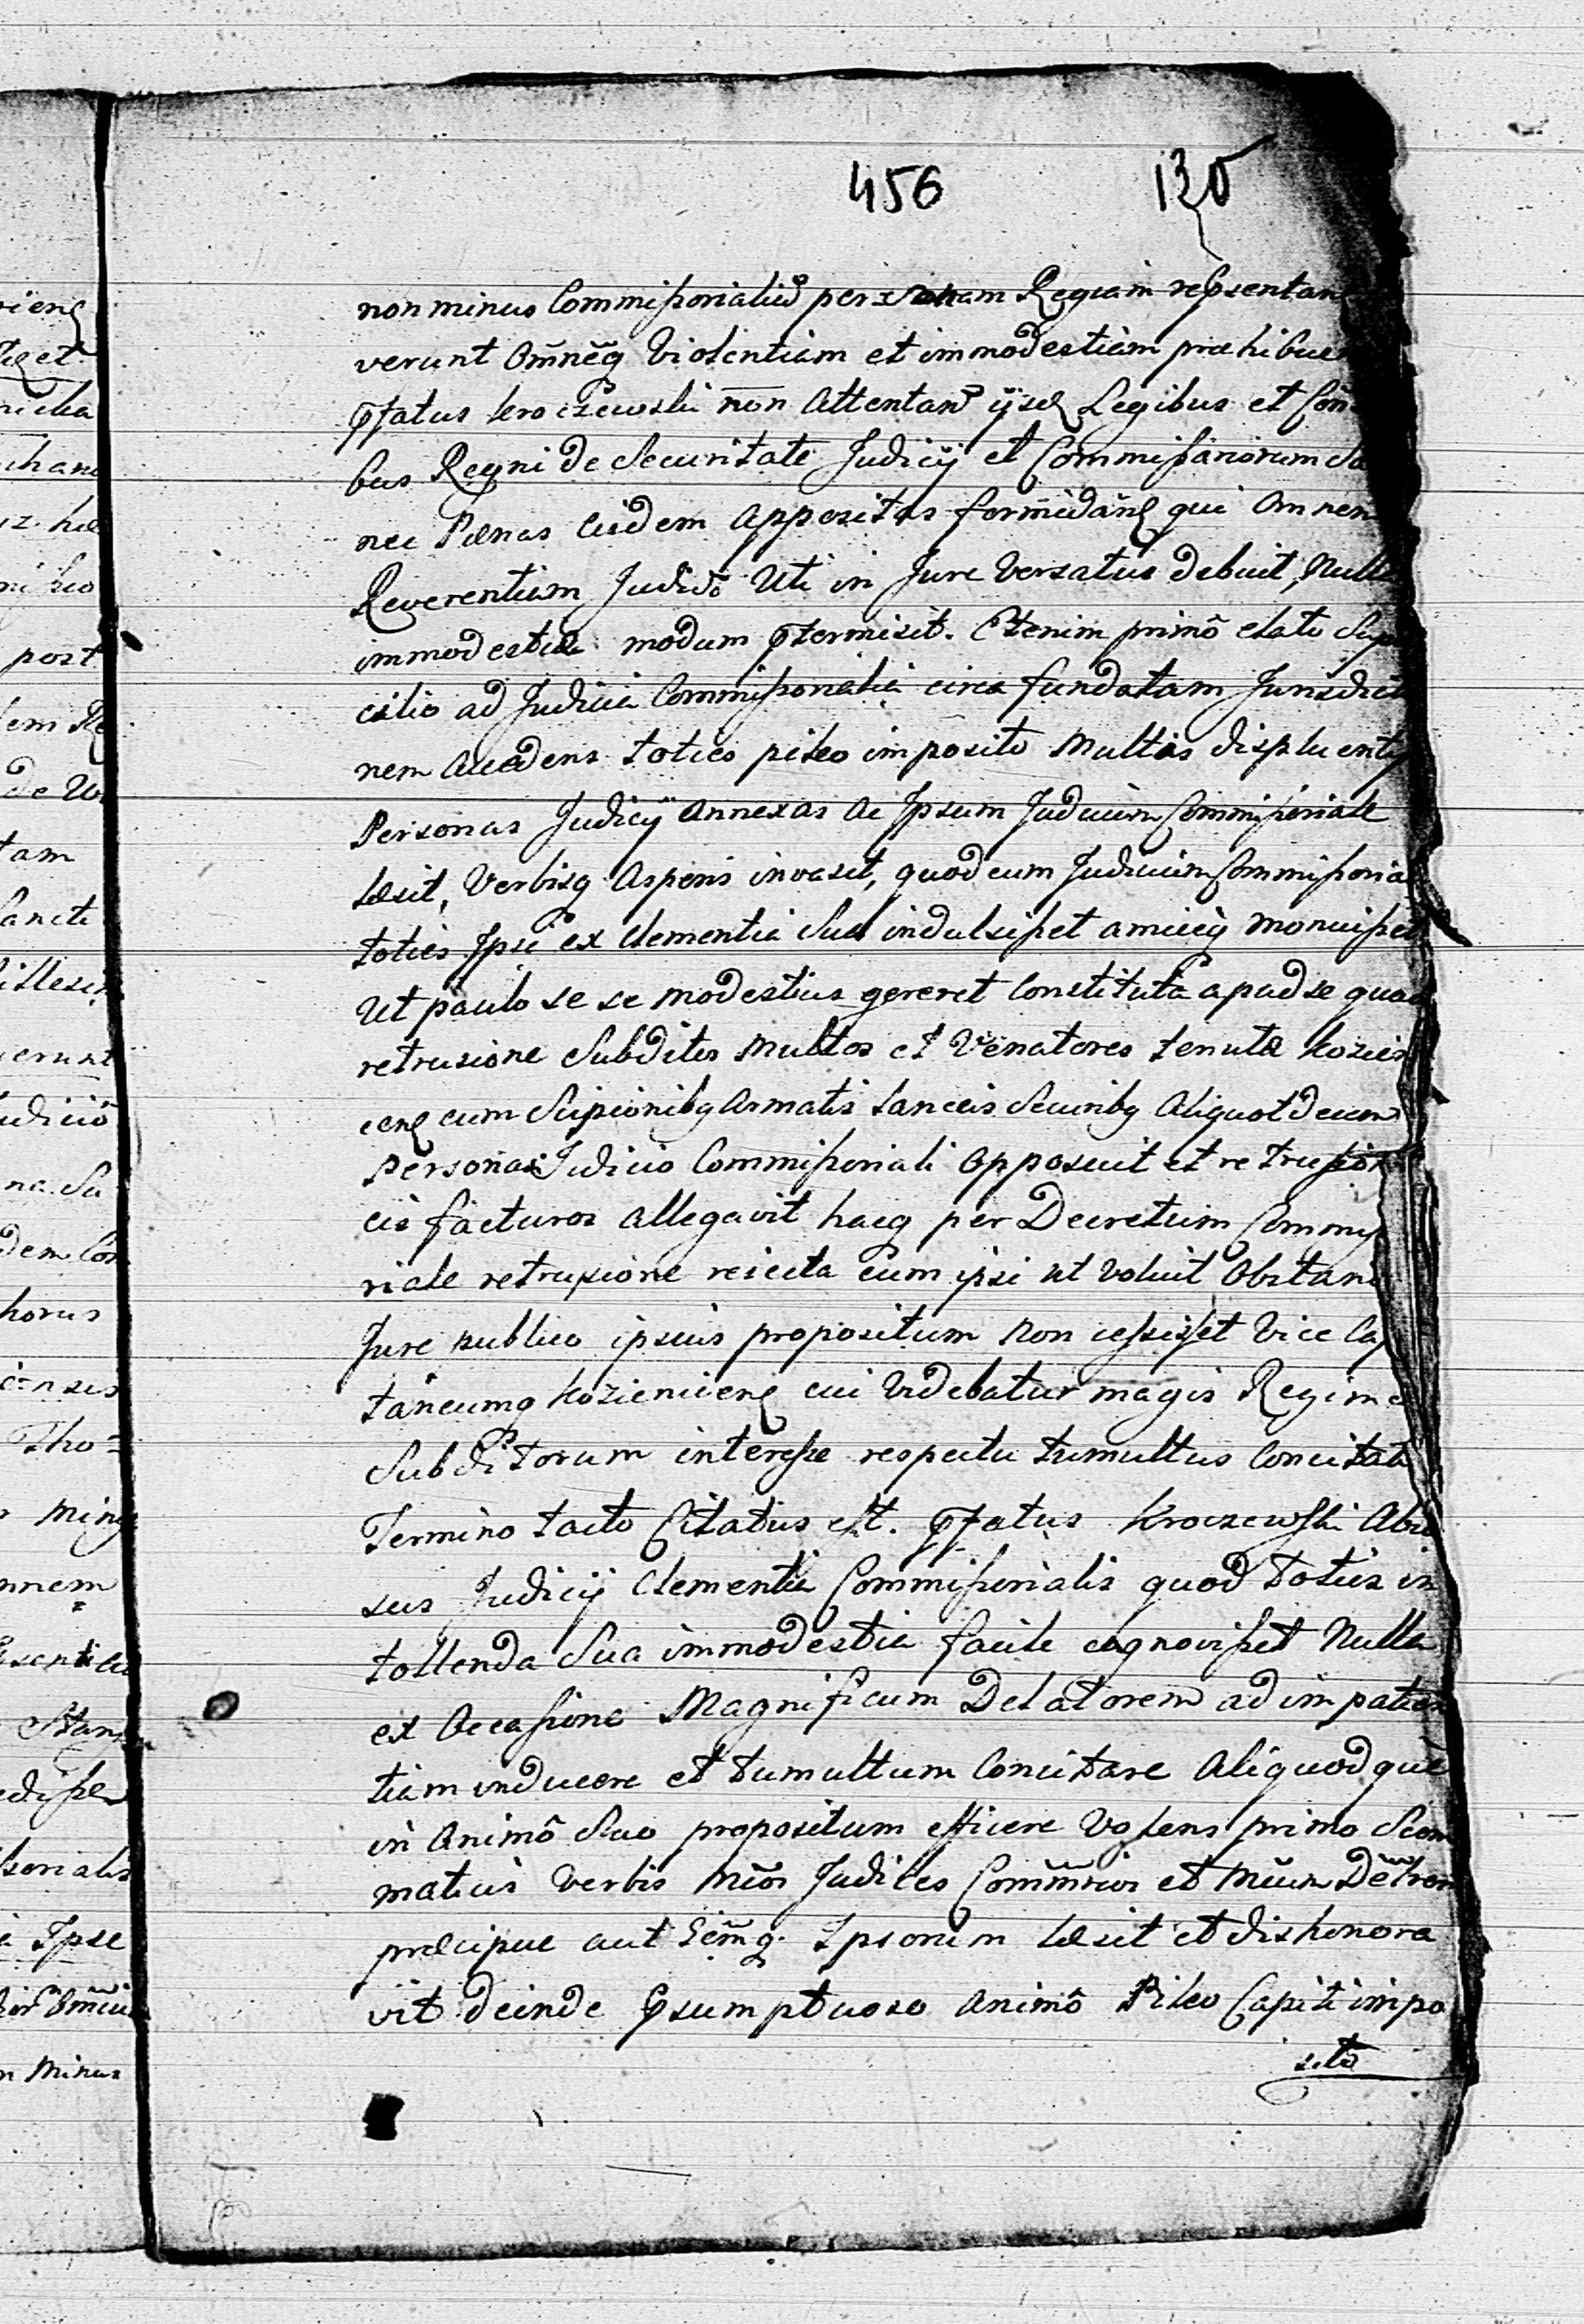 456 130
non minus Commissorialiũ personam Regiam repsentan
verunt Omneq Violentiam et immodestiam prohibue
pfatus Kroczewski non Attentan ijsd Legibus et Con
bus Regni de Securitate Judicij et Commissariorum Sa
nec Pænas Eisdem Appositas formidan qui Omnem
Reverentiam Judicio Uti in Jure Versatus debuit, Null
immodestiæ modum ptermisit. Etenim primô elato Sup
cilio ad Judicia Commissorialia circa fundatam Jurisdict
nem Accedens toties pileo imposito Multis displicent
Personas Judicij Annexas Ac Ipsum Judicium Commissoriale
læsit, Verbisq Asperis invasit, quod cum Judicium Commissoria
toties Ipsi ex Clementia Sua indulsisset amiceq Monuisset
Ut paulo se se modestius gereret Constituta apud se quad
retrusione Subditos Multos et Venatores tenutæ Kozien
cen cum Scipionibq Armatis Lanceis Securibq Aliquot decem
Personas Judicio Commissoriali Opposuit et retrusion
eis facturos allegavit hacq per Decretum Commis
riale retrusione reiecta Cum ipsi ut Voluit Obstan
Jure publico ipsius propositum Non cessisset Vice Cap
taneumq Kozienicen cui Videbatur magis Regimen
Subditorum interesse respectu tumultus Concitati
Termino tacto Citatus est. pfatus Kroczewski Abu
sus Judicij Clementia Commissorialis quod toties in
tollenda Sua immodestia facile cognovisset Nulla
ex Occasione Magnificum Delatorem ad impatien
tiam inducere et tumultum Concitare Aliquod que
in Animô Suo propositum efficere Volens primo Scom
maticis Verbis Mcos Judices Commrios et Mcum Deltrem
præcipue aut Ipsorum læsit et dishonora
vit deinde psumptuoso Animô Pileo Capiti impo
sito